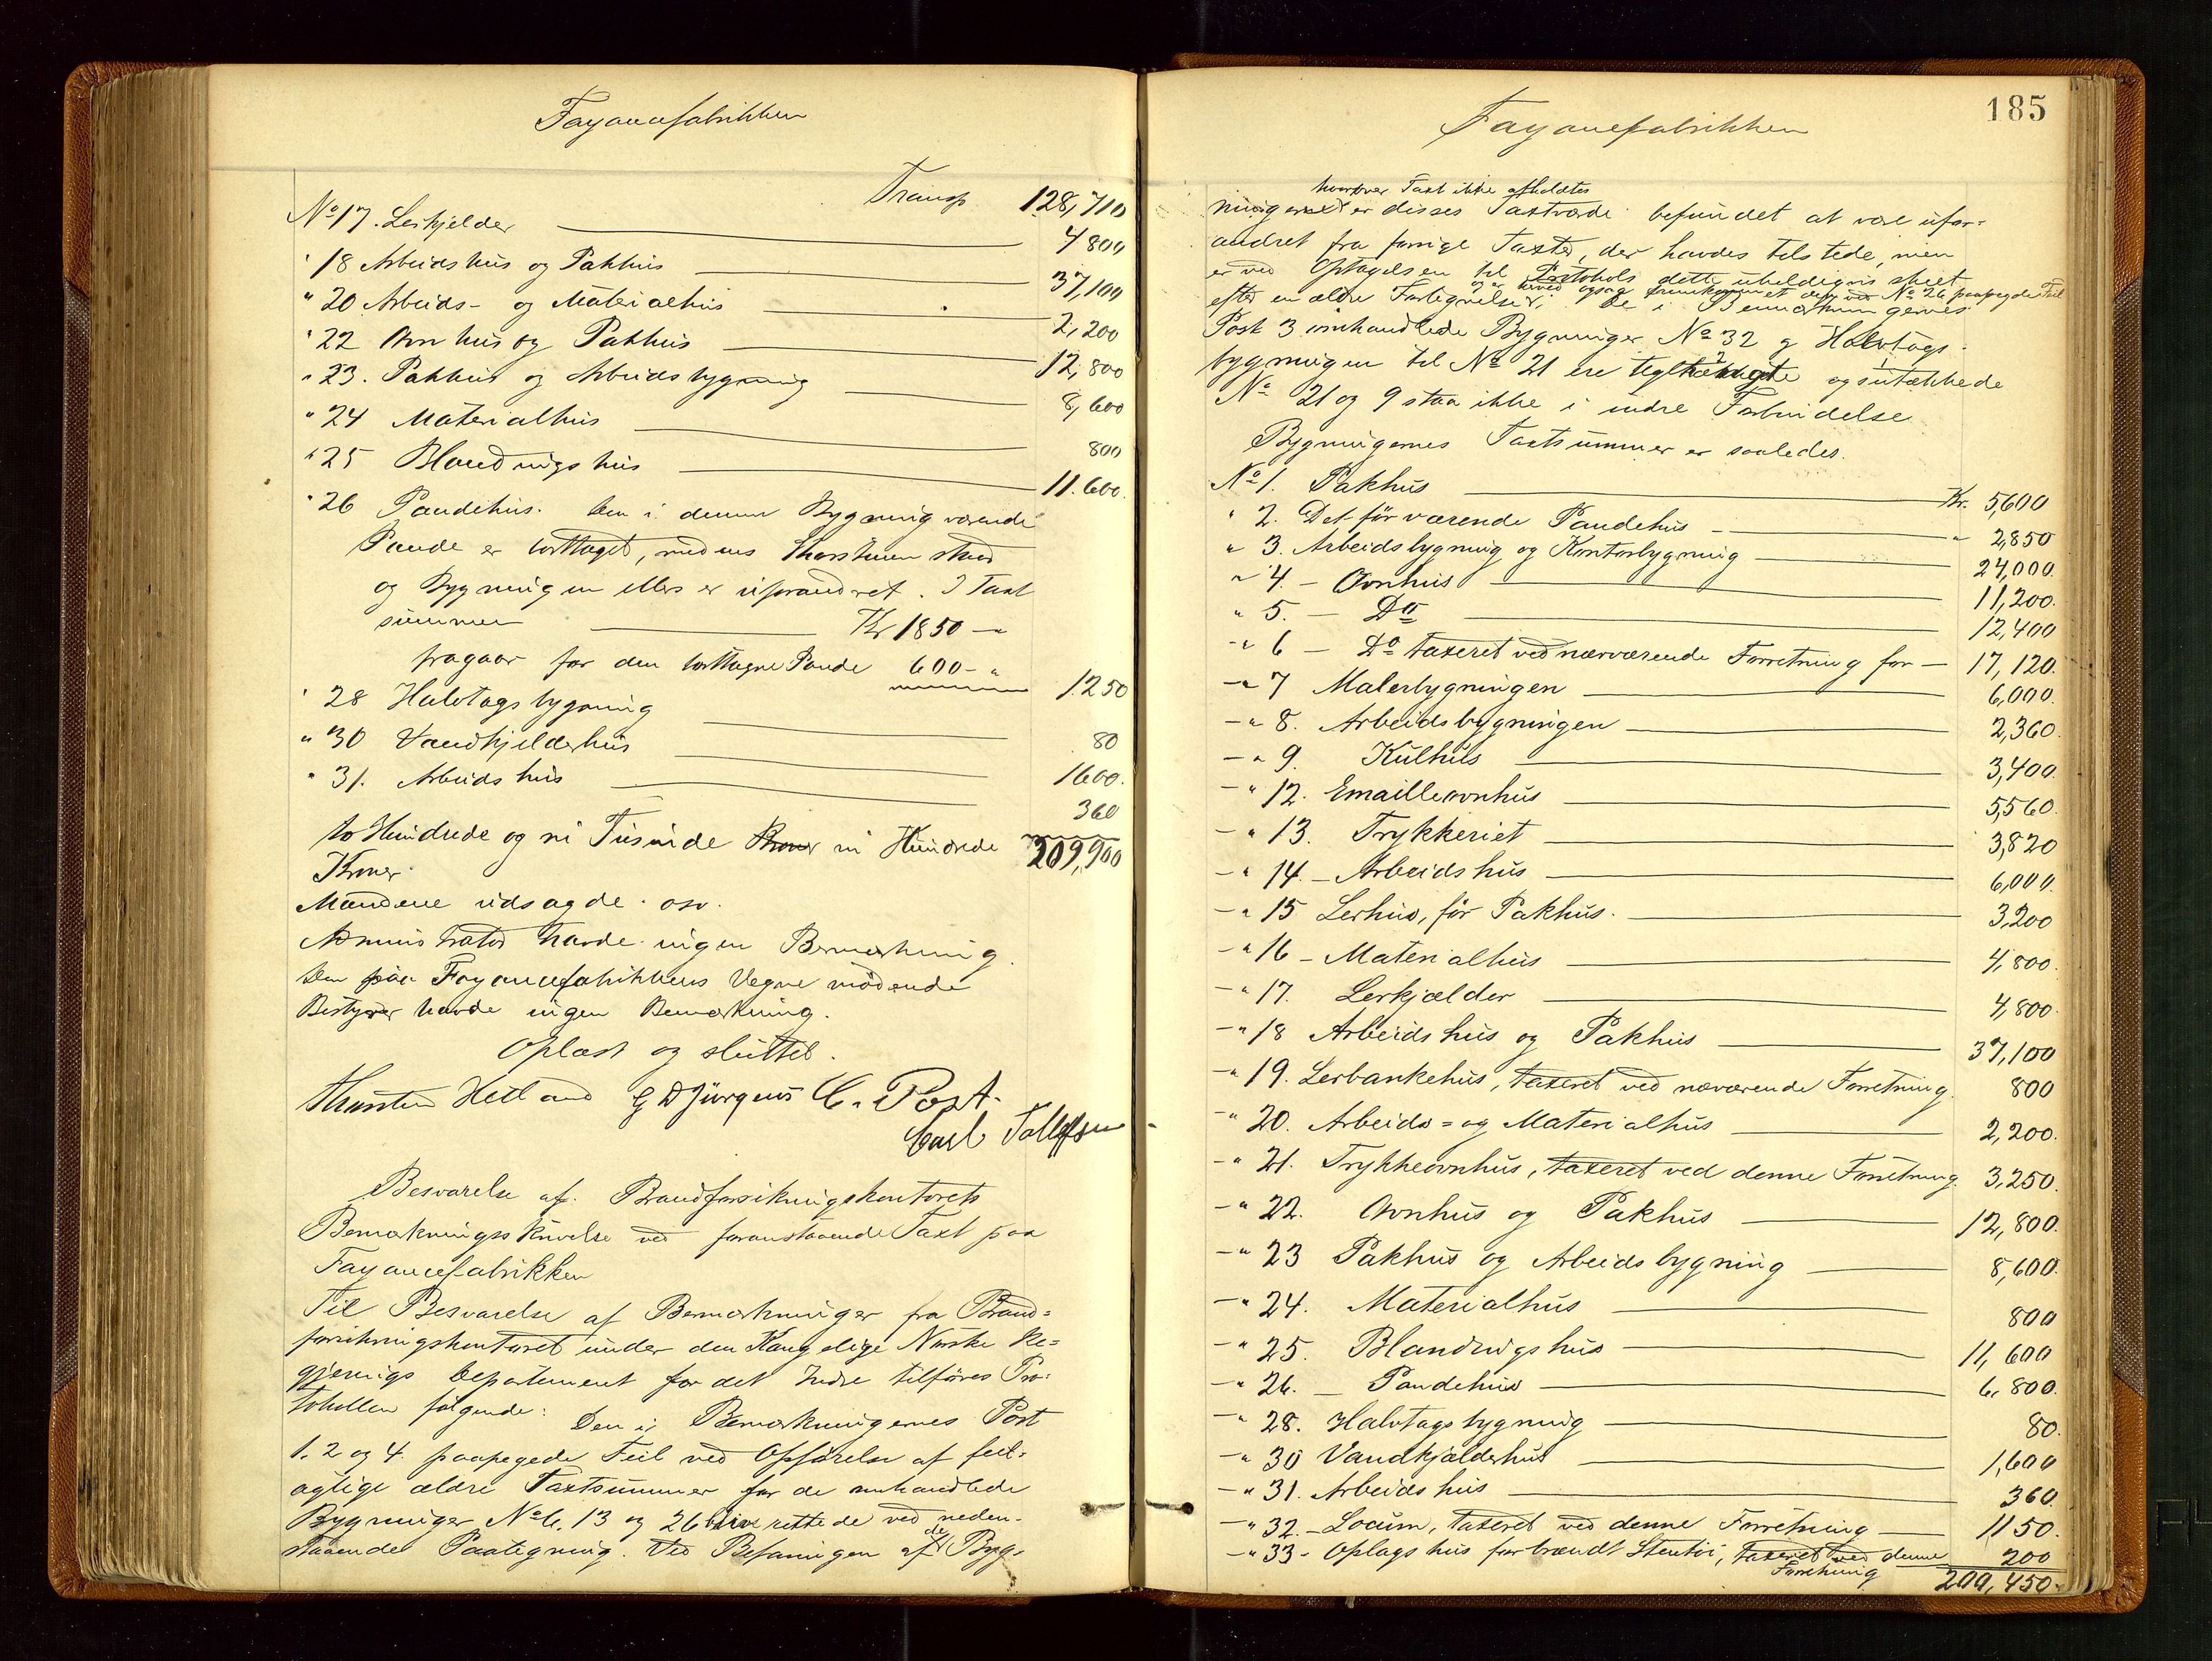 Fayancefabrikken
Transp 128,710
No 17. Lerkjelder 4800,
" 18 Arbeidshus og Pakhus 37,100
" 20 Arbeids- og Materialhus 2,200
" 22 Ovnhus og Pakhus 12,800
" 23. Pakhus og Arbeidsbygning 8,600
" 24 Materialhus 800
" 25 Blandnigshus 11.600.
" 26 Pandehus. Den i denne Bygning værende
Pande er borttaget, medens Skorstenen staar
og Bygningen ellers er uforandret. I Taxt
summen Kr 1850 - "
fragaar for den borttagne Pande 600 - " 1250
" 28 Halvtagsbygning 80
" 30 Vandkjelderhus 1600.
" 31. Arbeidshus 360
to Hundrede og ni Tusinde Kroner ni Hundrede 209,900
Kroner.
Mændene udsagde. osv.
Administrator havde ingen Bemærkning.
Den paa Fayancefabrikkens Vegne mødende
Bestyrer havde ingen Bemærkning.
Oplæst og sluttet.
Thorsten Hetland G D Jürgens C. Post.
Carl Tollefsen
Besvarelse af Brandforsikringskontorets
Bemærkningsskrivelse ved foranstaaende Taxt paa
Fayancefabrikken
Til Besvarelse af Bemærkninger fra Brand=
forsikringskontoret under den Kongelige Norske Re=
gjerings Departement for det Indre tilføres Pro=
tokollen følgende: Den i Bemærkningernes Post
1. 2 og 4. paapegede Feil ved Opførelse af feil-
agtige ældre Taxtsummer for de omhandlede
Bygninger No 6. 13 og 26 blive rettede ved neden-
staaende Paategning. Ved Befaringen af de Byg-
185
Fayancefabrikken
hvorover Taxt ikke afholdtes
ninger er disses Taxtværdi befundet at være ufor=
andret fra forrige Taxter, der havdes tilstede, men
er ved Optagelsen til Protokols dette uheldigvis skeet
og er herved ogsaa fremkommet den ved No 26 paapegede Feil
efter en ældre Fortegnelse. De i Bemærkningernes
Post 3 omhandlede Bygninger No 32 og Halvtags-
bygningen til No 21 ere teglhængte og sutækkede
No 21 og 9 staa ikke i indre Forbindelse
Bygningernes Taxtsummer er saaledes.
No 1. Pakhus Kr. 5,600
" 2. Det før værende Pandehus " 2,850
" 3. Arbeidsbygning og Kontorbygning 24,000.
" 4. - Ovnhus 11,200.
" 5. - Do 12,400
-" 6 - Do taxeret ved nærværende Forretning for - 17,120.
-" 7 Malerbygningen 6,000.
-" 8. Arbeidsbygningen 2,360.
-" 9. Kulhus 3,400.
-" 12. Emailleovnhus 5,560.
-" 13. Trykkeriet 3,820
-" 14 - Arbeidshus 6,000.
-" 15 Lerhus, før Pakhus. 3,200
-" 16 - Materialhus 4,800.
-" 17. Lerkjælder 4,800.
-" 18 Arbeidshus og Pakhus 37,100
-" 19. Lerbankehus, taxeret ved nærværende Forretning. 800
-" 20. Arbeids= og Materialhus 2,200.
-" 21. Trykkeovnhus, taxeret ved denne Forretning. 3,250.
-" 22. Ovnhus og Pakhus 12,800.
-" 23 Pakhus og Arbeidsbygning 8,600.
-" 24. Materialhus 800
-" 25. Blandnigshus 11,600
-" 26. - Pandehus 6,800.
-" 28. Halvtagsbygning 80.
-" 30 Vandkjælderhus 1,600
-" 31. Arbeidshus 360.
-" 32. - Locum, taxeret ved denne Forretning 1150.
-" 33 - Oplagshus for brændt Stentøi, taxeret ved denne 200
Forretning 200,450.